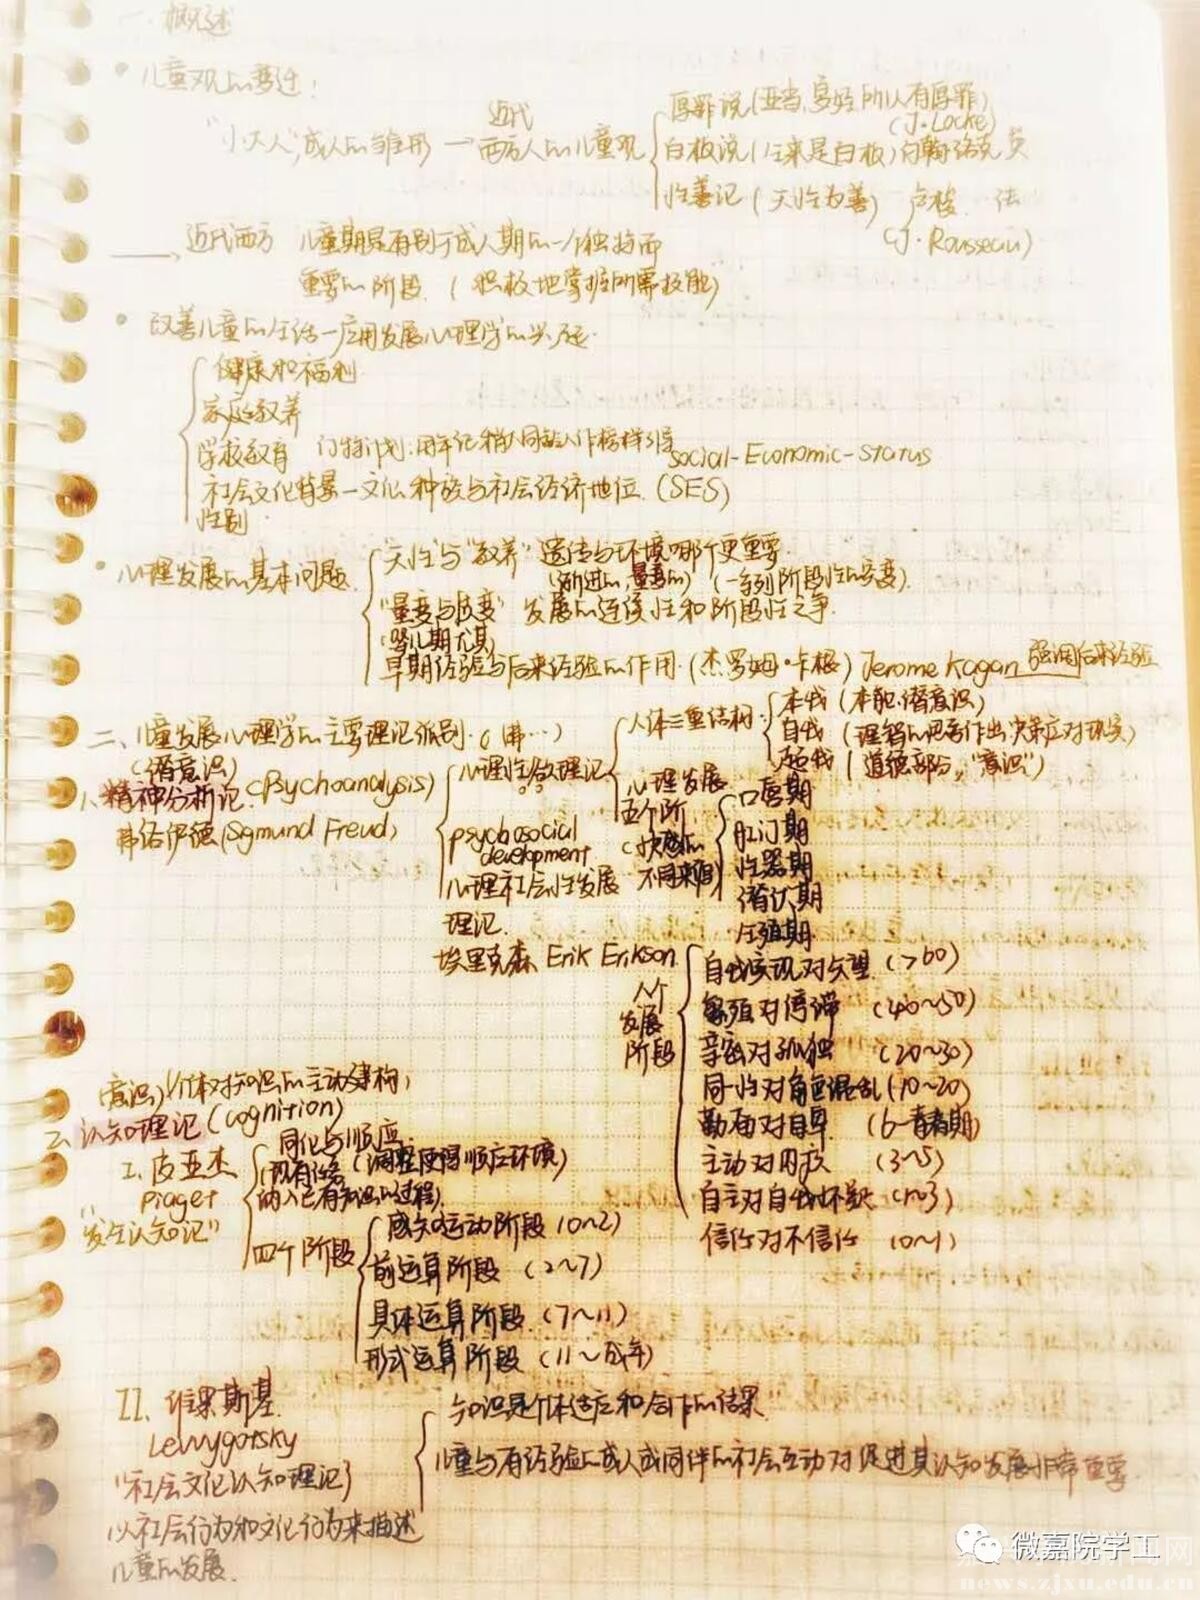 一、概述
儿童观的变迁:
近代
原罪说(亚当、夏娃 所以人有原罪)
(J·Locke)
"小大人",成人的雏形 → 西方人的儿童观
白板说(生来是白板)约翰·洛克 英
性善论(天性为善) 卢梭 法
(J·Rousseau)
→ 近代西方 儿童期是有别于成人期的一个独特而
重要的阶段.(积极地掌握所需技能)
改善儿童的生活—应用发展心理学的兴起.
健康和福利
家庭教养
学校教育
social-Economic-status
社会文化背景—文化、种族与社会经济地位.(SES)
性别
"天性"与"教养" 遗传与环境哪个更重要.
心理发展的基本问题
(渐进的,量变的) (一系列阶段性的突变).
"量变与质变" 发展的连续性和阶段性之争.
(婴儿期尤其)
早期经验与后来经验的作用.(杰罗姆·卡根) Jerome Kagan 强调后来经验
二、儿童发展心理学的主要理论派别.
(弗…)
人体三重结构
本我(本能、潜意识)
自我(理智的思考作出决策应对现实)
超我(道德部分,"意识")
(潜意识)
1、精神分析论(Psychoanalysis)
弗洛伊德(Sgmund Freud)
心理性欲理论
心理发展
五个阶
(快感的
不同来源)
口唇期
肛门期
性器期
潜伏期
生殖期
psychosocial
development
心理社会性发展
理论.
埃里克森 Erik Erikson
八个
发展
阶段
自我实现对失望 (>60)
繁殖对停滞 (40~50)
亲密对孤独 (20~30)
同一性对角色混乱(10~20)
勤奋对自卑 (6-青春期)
主动对内疚 (3~5)
自主对自我怀疑 (1~3)
信任对不信任 (0~1)
(意识)(个体对知识的主动建构)
2、认知理论(cognition)
I、皮亚杰
Piaget
"发生认知论"
同化与顺应.
(调整使得顺应环境)
纳入已有知识的过程)
四个阶段
感知运动阶段(0~2)
前运算阶段 (2~7)
具体运算阶段 (7~11)
形式运算阶段 (11~成年)
II、维果斯基.
Levvygotsky
(社会文化认知理论)
以社会行为和文化行为来描述
儿童的发展.
知识是个体适应和合作的结果
儿童与有经验的成人或同伴的社会互动对促进其认知发展非常重要
微嘉院学工
news.zjxu.edu.cn